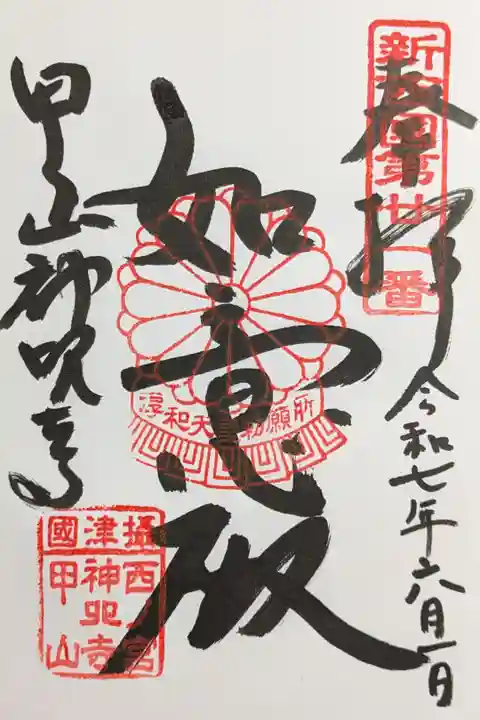 新西國第廿一番
奉拝
令和七年六月一日
如意殿
淳和天皇勅願所
甲山神呪寺
攝津國
西ノ宮
神呪寺
甲山